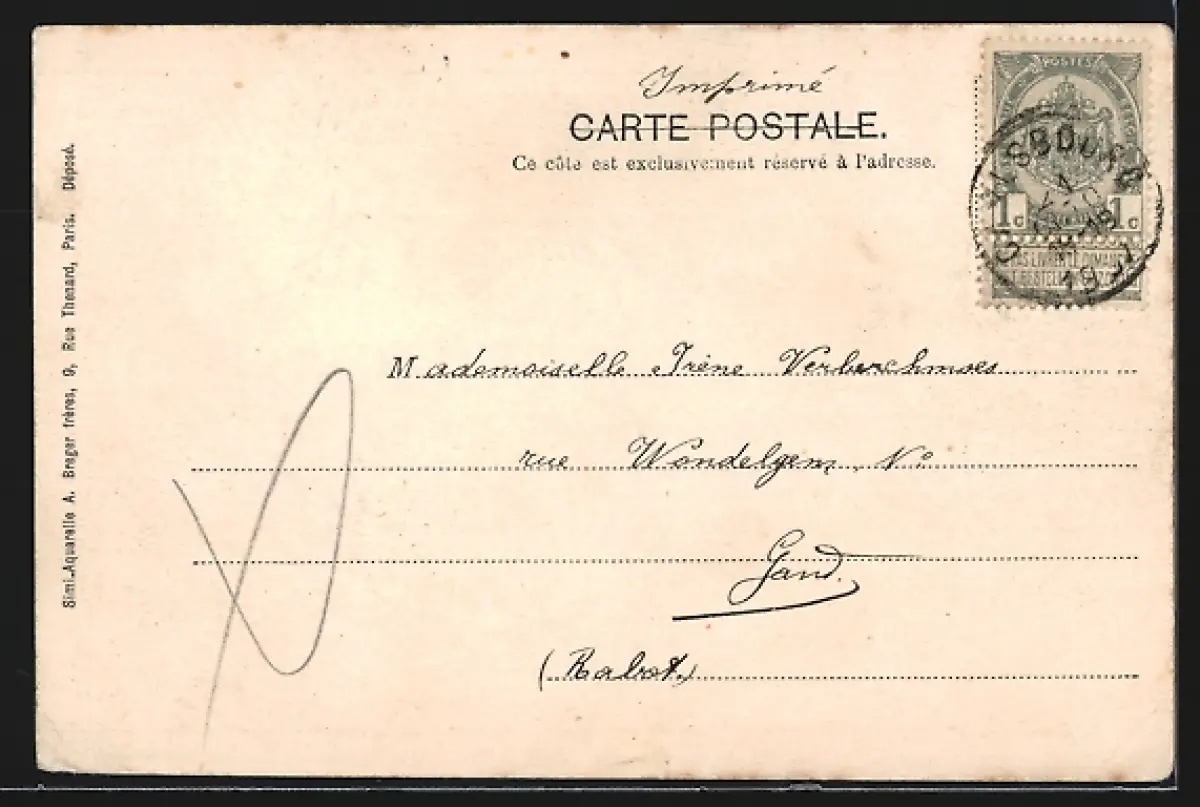 Imprimé
CARTE POSTALE.
Ce côte est exclusivement réservé à l'adresse.
POSTES
1c 1c
19
Mademoiselle Irène
rue Wondelgem, N°
Gand.
(Rabot)
Simi-Aquarelle A. Breger frères, 9, Rue Thenard, Paris. Déposé.